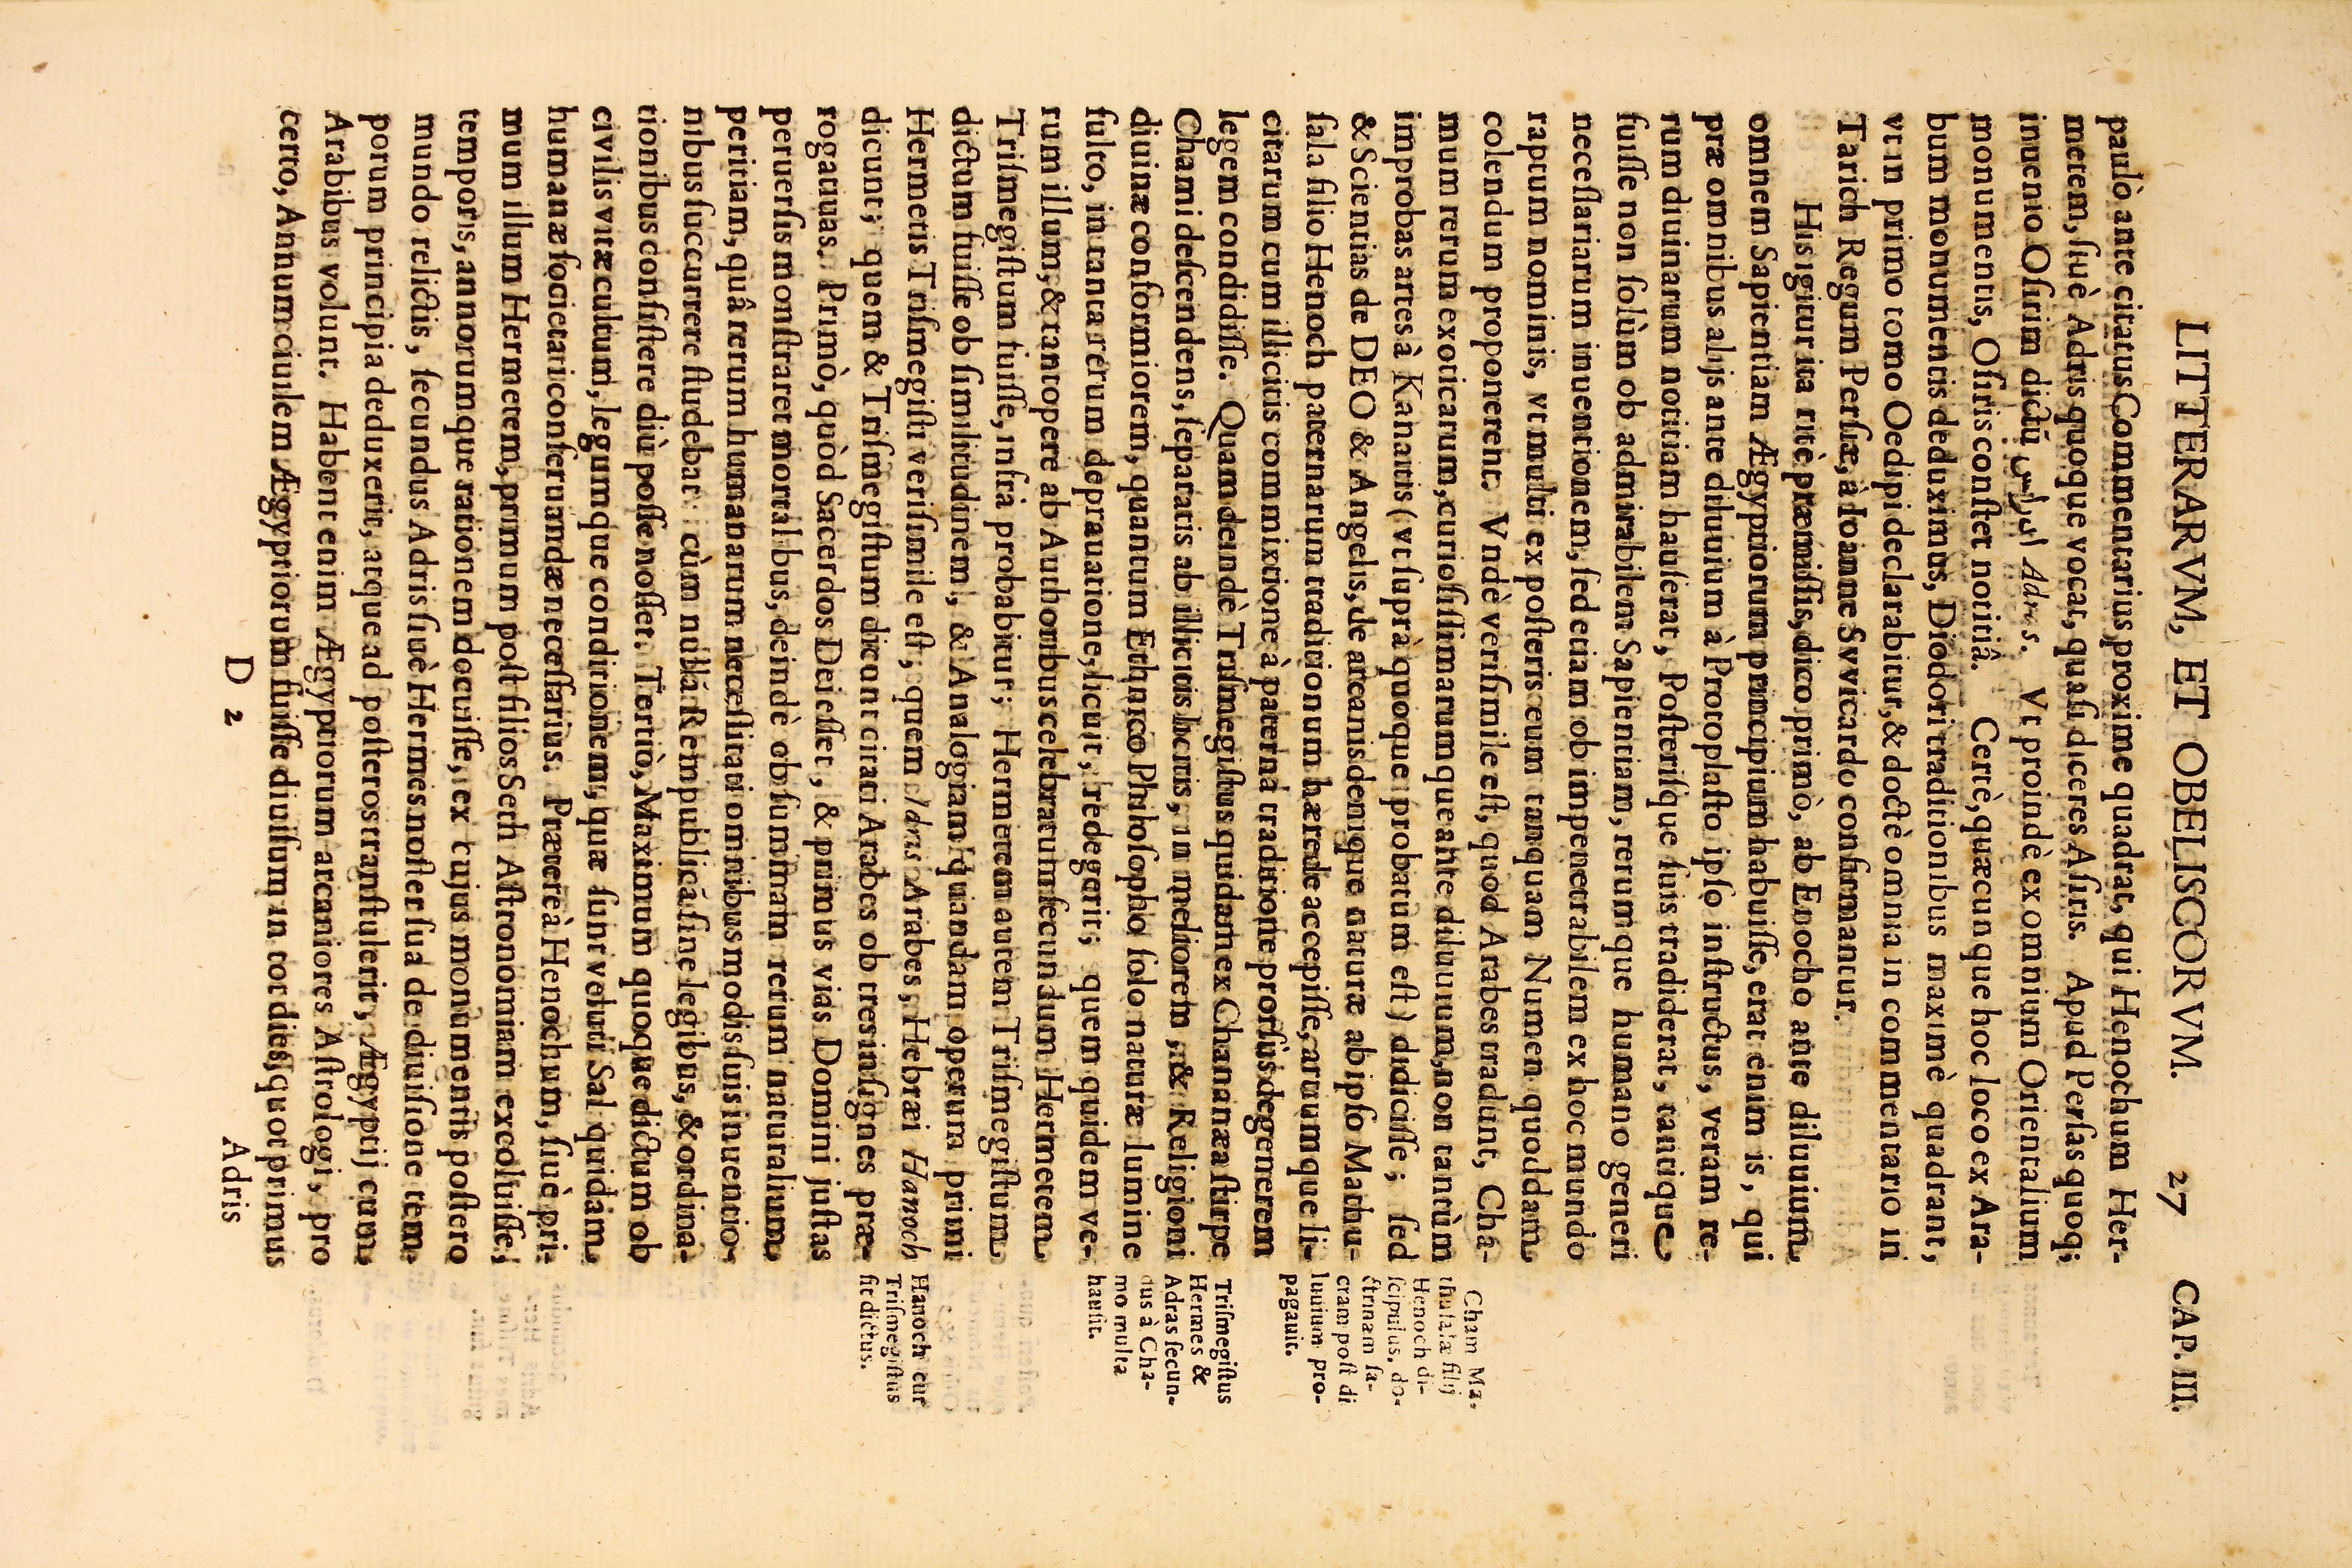 LITTERARVM, ET OBELISCORVM. 27 CAP. III.
paulò ante citatus Commentarius proxime quadrat, qui Henochum Her-
metem, ſiuè Adris quoque vocat, quaſi diceres Aſiris. Apud Perſas quoq;
inuenio Oſirim dictũ ادراس Adras. Vt proindè ex omnium Orientalium
monumentis, Oſiris conſtet notitiâ. Certè, quæcunque hoc loco ex Ara-
bum monumentis deduximus, Diodori traditionibus maximè quadrant,
vt in primo tomo Oedipi declarabitur, & doctè omnia in commentario in
Tarich Regum Perſiæ, à Ioanne Svvicardo confirmantur.
His igitur ita ritè præmiſſis, dico primò, ab Enocho ante diluuium
omnem Sapientiam Ægyptiorum principium habuiſſe, erat enim is, qui
præ omnibus alijs ante diluuium à Protoplaſto ipſo inſtructus, veram re-
rum diuinarum notitiam hauſerat, Poſteriſque ſuis tradiderat, tantique
fuiſſe non ſolùm ob admirabilem Sapientiam, rerumque humano generi
neceſſariarum inuentionem, ſed etiam ob impenetrabilem ex hoc mundo
raptum nominis, vt multi ex poſteris eum tanquam Numen quoddam
colendum proponerent. Vndè veriſimile eſt, quod Arabes tradunt, Cha-
mum rerum exoticarum, curioſiſſimarumque ante diluuium, non tantùm
improbas artes à Kanaitis (vt ſuprà quoque probatum eſt) didiciſſe; ſed
& Scientias de DEO & Angelis, de arcanis denique naturæ ab ipſo Mathu-
ſala filio Henoch paternarum traditionum hærede accepiſſe, artiumque li-
citarum cum illicitis commixtione à paterna traditione prorſùs degenerem
legem condidiſſe. Quam deindè Triſmegiſtus quidam ex Chananæa ſtirpe
Chami deſcendens, ſeparatis ab illicitis licitis, in meliorem, & Religioni
diuinæ conformiorem, quantum Ethnico Philoſopho ſolo naturæ lumine
fulto, in tanta rerum deprauatione, licuit, redegerit; quem quidem ve-
rum illum, & tantopere ab Authoribus celebratum ſecundum Hermetem
Triſmegiſtum fuiſſe, infra probabitur; Hermetem autem Triſmegiſtum
dictum fuiſſe ob ſimilitudinem, & Analogiam quandam operum primi
Hermetis Triſmegiſti veriſimile eſt; quem Idris Arabes, Hebræi Hanoch
dicunt; quem & Triſmegiſtum dicunt citati Arabes ob tres inſignes præ-
rogatiuas. Primò, quòd Sacerdos Dei eſſet, & primus vias Domini juſtas
peruerſis monſtraret mortalibus, deindè ob ſummam rerum naturalium
peritiam, quâ rerum humanarum neceſſitati omnibus modis ſuis inuentio-
nibus ſuccurrere ſtudebat: cùm nullã Rempublicã ſine legibus, & ordina-
tionibus conſiſtere diù poſſe noſſet. Tertiò, Maximum quoque dictum ob
civilis vitæ cultum, legumque conditionem, quæ ſunt veluti Sal quidam
humanæ ſocietati conſeruandæ neceſſarius. Prætereà Henochum, ſiuè pri-
mum illum Hermetem, primum poſt filios Seth Aſtronomiam excoluiſſe,
temporis, annorumque rationem docuiſſe, ex cujus monumentis poſtero
mundo relictis, ſecundus Adris ſiuè Hermes noſter ſua de diuiſione tem-
porum principia deduxerit, atque ad poſteros tranſtulerit, Ægyptij cum
Arabibus volunt. Habent enim Ægyptiorum arcaniores Aſtrologi, pro
certo, Annum ciuilem Ægyptiorum fuiſſe diuiſum in tot dies, quot primus
D 2 Adris
Cham Ma-
thuſalæ filij
Henoch di-
ſcipulus, do-
ctrinam ſa-
cram poſt di
luuium pro-
pagauit.
Triſmegiſtus
Hermes &
Adras ſecun-
dus à Cha-
mo multa
hauſit.
Hanoch cur
Triſmegiſtus
ſit dictus.